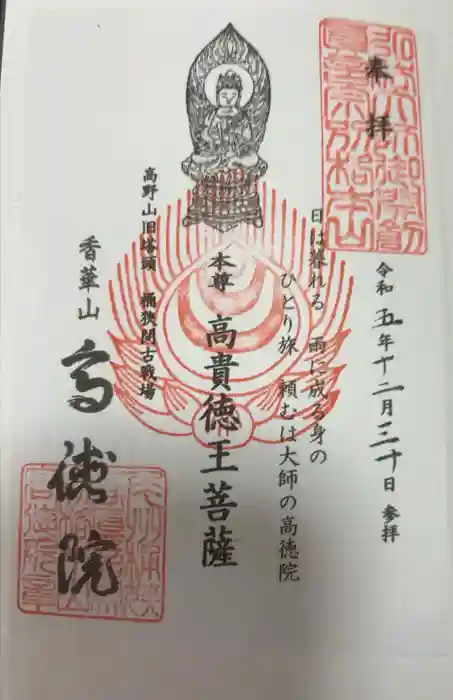 奉拝
令和五年十二月三十日 参拝
日は暮れる 雨に成る身の
ひとり旅 頼むは大師の高徳院
本尊 高貴徳王菩薩
高野山旧塔頭 桶狭間古戦場
香華山
高徳院